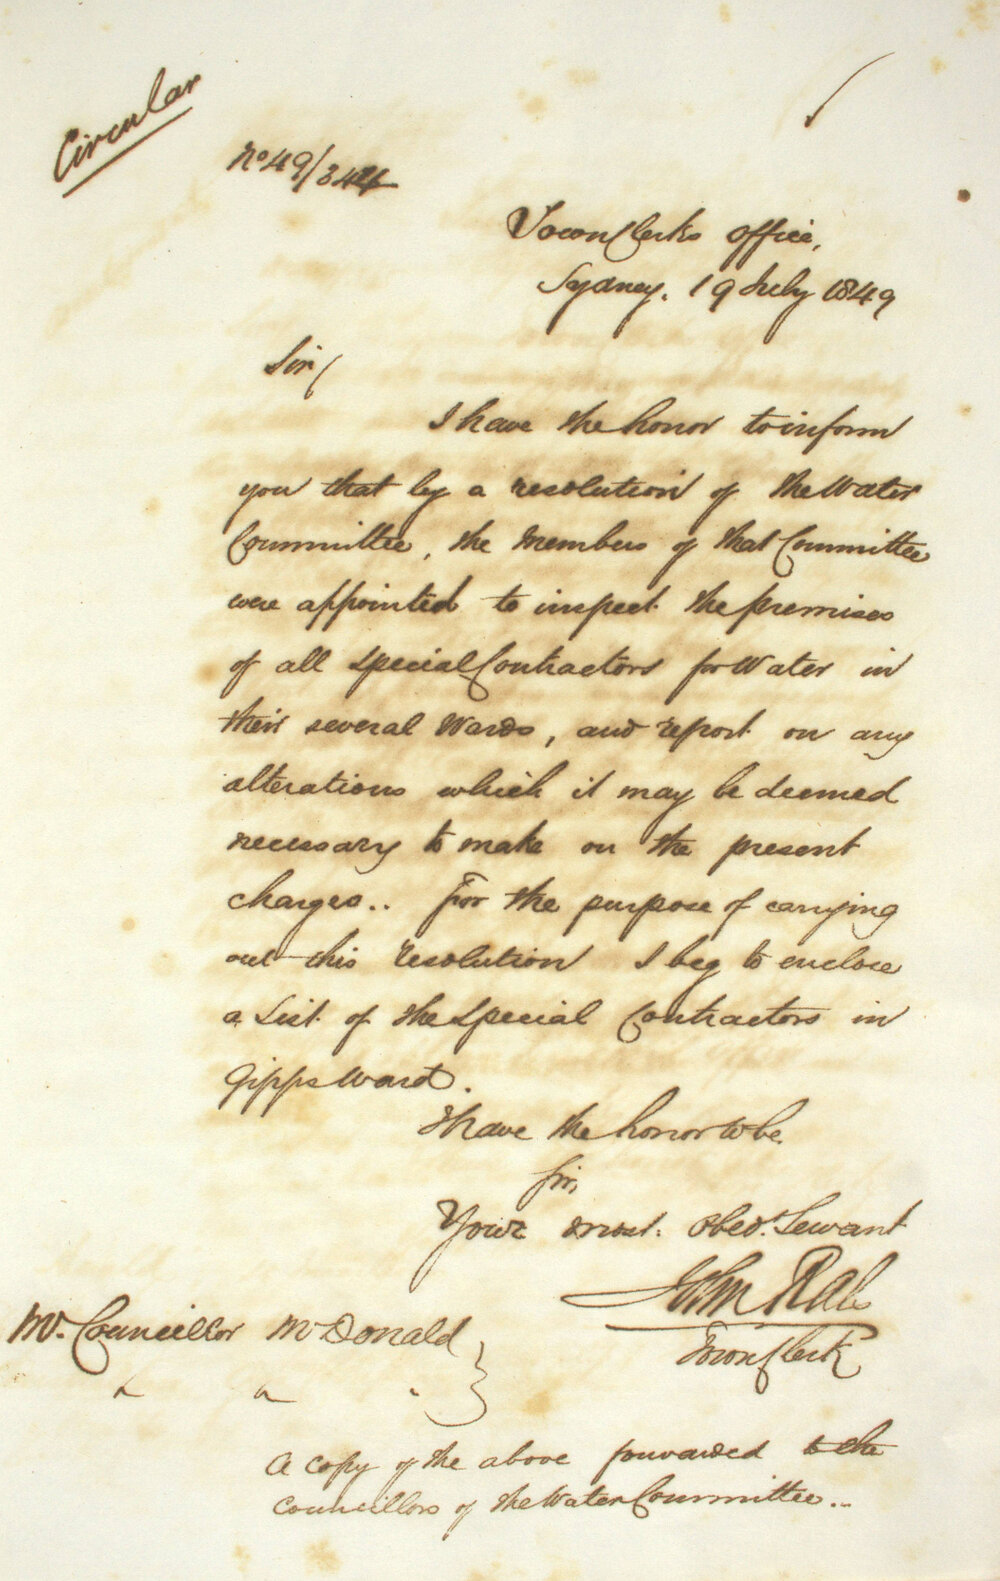 Circular
No 49/344
Town Clerks Office,
Sydney. 19 July 1849
Sir,
I have the honor to inform
you that by a resolution of the Water
Committee, the Members of that Committee
were appointed to inspect the premises
of all special Contractors for Water in
their several Wards, and report on any
alterations which it may be deemed
necessary to make on the present
charges.. For the purpose of carrying
out this resolution I beg to enclose
a List of the Special Contractors in
Gipps Ward.
I have the honor to be
Sir,
Your most Obedt. Servant
John Rae
Town Clerk
Mr. Councillor McDonald
" " "
A copy of the above forwarded to the
Councillors of the Water Committee...